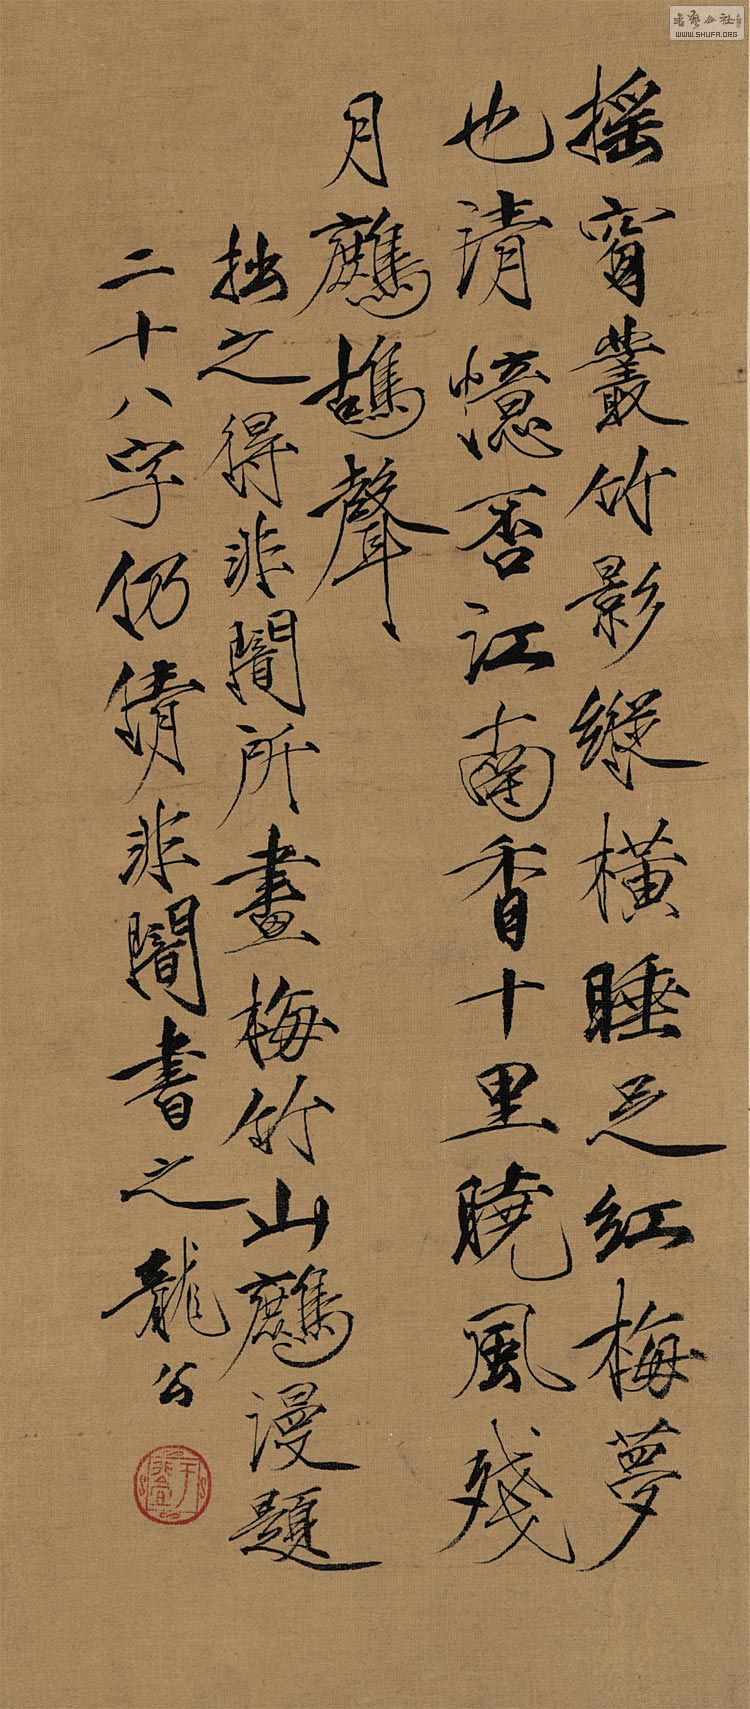 搖窗叢竹影縱橫睡足紅梅夢
也清憶否江南香十里曉風殘
月鷓鴣聲
拙之得非闇所畫梅竹山鷓漫題
二十八字仍倩非闇書之龍公
WWW.SHUFA.ORG